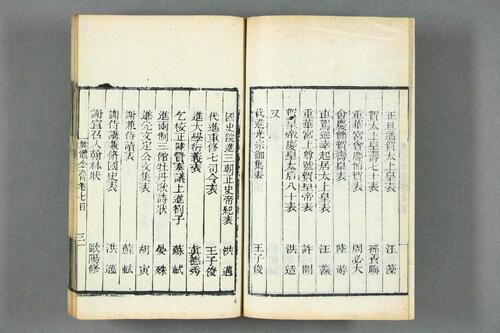 正旦進賀太上皇表 汪藻
賀太上皇壽七十表 孫覿
重華宮會慶節賀表 周必大
會慶節賀壽皇表 陸游
車駕還幸起居太上皇表 汪藻
重華宮上尊號賀皇帝表 許開
賀皇帝慶皇太后八十表 洪适
又
代進光宗御集表 王子俊
國史院進三朝正史帝紀表 洪邁
代進重修七司令表 王子俊
進大學衍義表 真德秀
乞校正陸贄奏議上進劄子 蘇軾
進兩制三館牡丹歌詩狀 晏殊
進先文定公文集表 胡寅
謝兼侍讀表 蘇軾
謝侍講兼修國史表 洪邁
謝宣召入翰林狀 歐陽修
卷七目 三